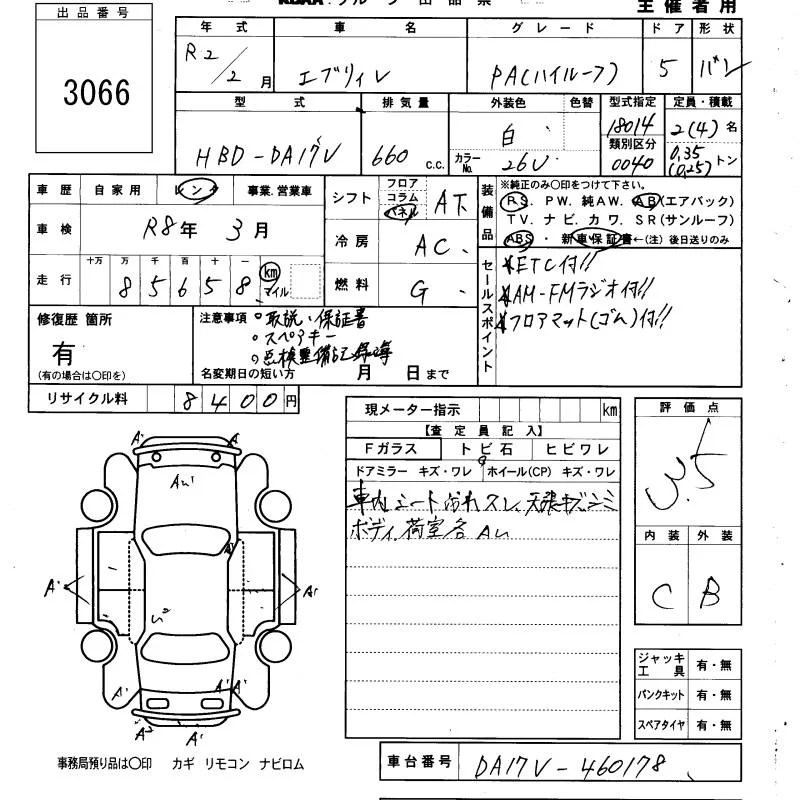 出品番号
3066
主催者用
年式 車名 グレード ドア 形状
R2/2月 エブリィV PA(ハイルーフ) 5 バン
型式 排気量 外装色 色替 型式指定 定員・積載
HBD-DA17V 660 c.c. 白 18014 2(4)名
カラーNo. 26U 類別区分 0040 0.35(0.25)トン
車歴 自家用 レンタ 事業.営業車
車検 R8年 3月
走行 十万 万 千 百 十 一 km マイル
8 5 6 5 8
シフト フロア コラム パネル AT
冷房 AC
燃料 G
装備品
※純正のみ〇印をつけて下さい。
PS. PW. 純AW. AB(エアバック)
TV. ナビ. カワ. SR(サンルーフ)
ABS・新車保証書←(注)後日送りのみ
セールスポイント
ETC付!!
AM-FMラジオ付!!
フロアマット(ゴム)付!!
修復歴 箇所
有
(有の場合は〇印を)
注意事項
取説・保証書
スペアキー
点検整備記録簿
名変期日の短い方 月 日まで
リサイクル料 8400円
現メーター指示 km
【査定員記入】
Fガラス トビ石 ヒビワレ
ドアミラー キズ・ワレ ホイール(CP) キズ・ワレ
車内シートよごれスレ、天張キズシミ
ボディ荷室各AU
評価点
3.5
内装 外装
C B
A' A'
AU'
A' A'
A' A' A'
A² A'
ジャッキ工具 有・無
パンクキット 有・無
スペアタイヤ 有・無
事務局預り品は〇印 カギ リモコン ナビロム
車台番号 DA17V-460178